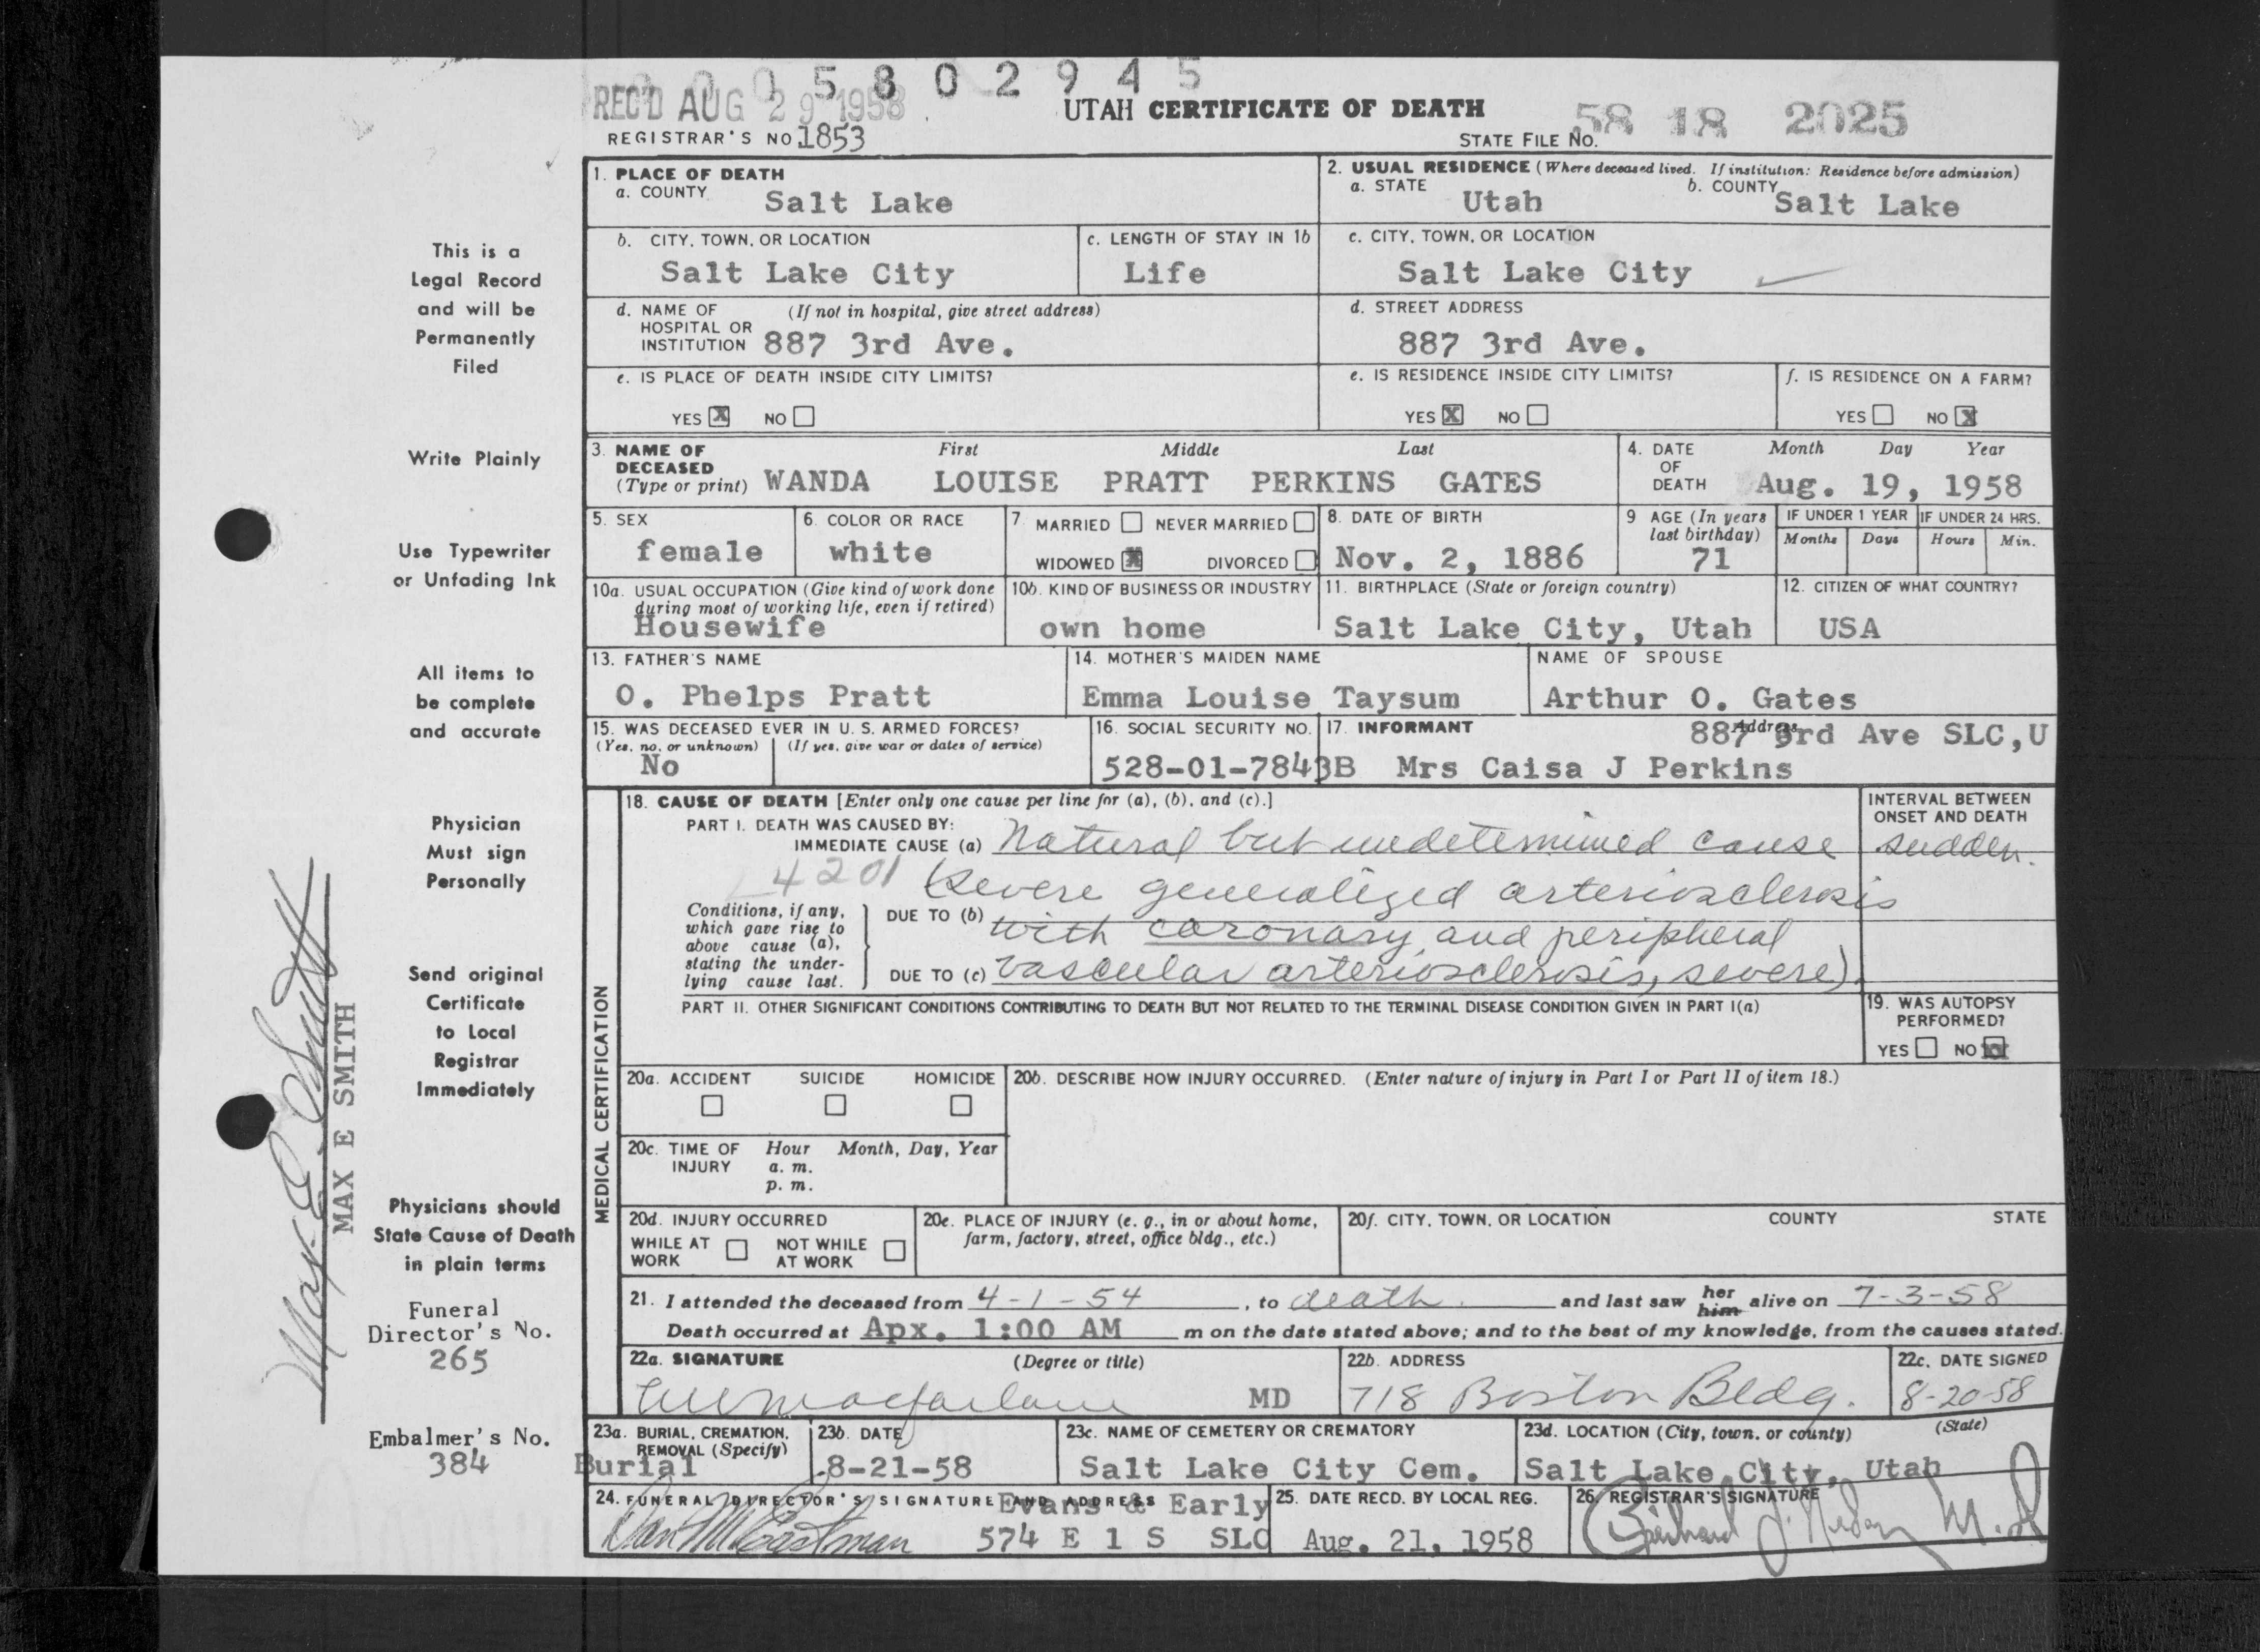 0 0 0 5 8 0 2 9 4 5
REC'D AUG 29 1958
UTAH CERTIFICATE OF DEATH
58 18 2025
REGISTRAR'S NO 1853
STATE FILE NO.
1. PLACE OF DEATH
a. COUNTY Salt Lake
2. USUAL RESIDENCE (Where deceased lived. If institution: Residence before admission)
a. STATE Utah b. COUNTY Salt Lake
b. CITY, TOWN, OR LOCATION Salt Lake City
c. LENGTH OF STAY IN 1b Life
c. CITY, TOWN, OR LOCATION Salt Lake City
d. NAME OF HOSPITAL OR INSTITUTION (If not in hospital, give street address) 887 3rd Ave.
d. STREET ADDRESS 887 3rd Ave.
e. IS PLACE OF DEATH INSIDE CITY LIMITS?
YES X NO
e. IS RESIDENCE INSIDE CITY LIMITS?
YES X NO
f. IS RESIDENCE ON A FARM?
YES NO X
3. NAME OF DECEASED (Type or print) First Middle Last
WANDA LOUISE PRATT PERKINS GATES
4. DATE OF DEATH Month Day Year
Aug. 19, 1958
5. SEX female
6. COLOR OR RACE white
7. MARRIED NEVER MARRIED
WIDOWED X DIVORCED
8. DATE OF BIRTH Nov. 2, 1886
9 AGE (In years last birthday) 71
IF UNDER 1 YEAR Months Days
IF UNDER 24 HRS. Hours Min.
10a. USUAL OCCUPATION (Give kind of work done during most of working life, even if retired)
Housewife
10b. KIND OF BUSINESS OR INDUSTRY
own home
11. BIRTHPLACE (State or foreign country)
Salt Lake City, Utah
12. CITIZEN OF WHAT COUNTRY?
USA
13. FATHER'S NAME
O. Phelps Pratt
14. MOTHER'S MAIDEN NAME
Emma Louise Taysum
NAME OF SPOUSE
Arthur O. Gates
15. WAS DECEASED EVER IN U. S. ARMED FORCES?
(Yes, no, or unknown) (If yes, give war or dates of service)
No
16. SOCIAL SECURITY NO.
528-01-7843B
17. INFORMANT Address
887 3rd Ave SLC,U
Mrs Caisa J Perkins
MEDICAL CERTIFICATION
18. CAUSE OF DEATH [Enter only one cause per line for (a), (b), and (c).]
INTERVAL BETWEEN ONSET AND DEATH
PART I. DEATH WAS CAUSED BY:
IMMEDIATE CAUSE (a) Natural but undetermined cause sudden.
4201 (severe generalized arteriosclerosis
Conditions, if any, which gave rise to above cause (a), stating the underlying cause last.
DUE TO (b) with coronary and peripheral
DUE TO (c) vascular arteriosclerosis, severe).
PART II. OTHER SIGNIFICANT CONDITIONS CONTRIBUTING TO DEATH BUT NOT RELATED TO THE TERMINAL DISEASE CONDITION GIVEN IN PART I(a)
19. WAS AUTOPSY PERFORMED?
YES NO X
20a. ACCIDENT SUICIDE HOMICIDE
20b. DESCRIBE HOW INJURY OCCURRED. (Enter nature of injury in Part I or Part II of item 18.)
20c. TIME OF INJURY Hour Month, Day, Year
a. m.
p. m.
20d. INJURY OCCURRED
WHILE AT WORK NOT WHILE AT WORK
20e. PLACE OF INJURY (e. g., in or about home, farm, factory, street, office bldg., etc.)
20f. CITY, TOWN, OR LOCATION COUNTY STATE
21. I attended the deceased from 4-1-54, to death. and last saw her him alive on 7-3-58
Death occurred at Apx. 1:00 AM m on the date stated above; and to the best of my knowledge, from the causes stated.
22a. SIGNATURE (Degree or title)
Macfarlane MD
22b. ADDRESS
718 Boston Bldg.
22c. DATE SIGNED
8-20-58
23a. BURIAL, CREMATION, REMOVAL (Specify)
Burial
23b. DATE
8-21-58
23c. NAME OF CEMETERY OR CREMATORY
Salt Lake City Cem.
23d. LOCATION (City, town, or county) (State)
Salt Lake City, Utah
24. FUNERAL DIRECTOR'S SIGNATURE AND ADDRESS
Evans & Early
574 E 1 S SLC
25. DATE RECD. BY LOCAL REG.
Aug. 21, 1958
26. REGISTRAR'S SIGNATURE
This is a
Legal Record
and will be
Permanently
Filed
Write Plainly
Use Typewriter
or Unfading Ink
All items to
be complete
and accurate
Physician
Must sign
Personally
Send original
Certificate
to Local
Registrar
Immediately
Physicians should
State Cause of Death
in plain terms
Funeral
Director's No.
265
Embalmer's No.
384
Max E Smith
MAX E SMITH